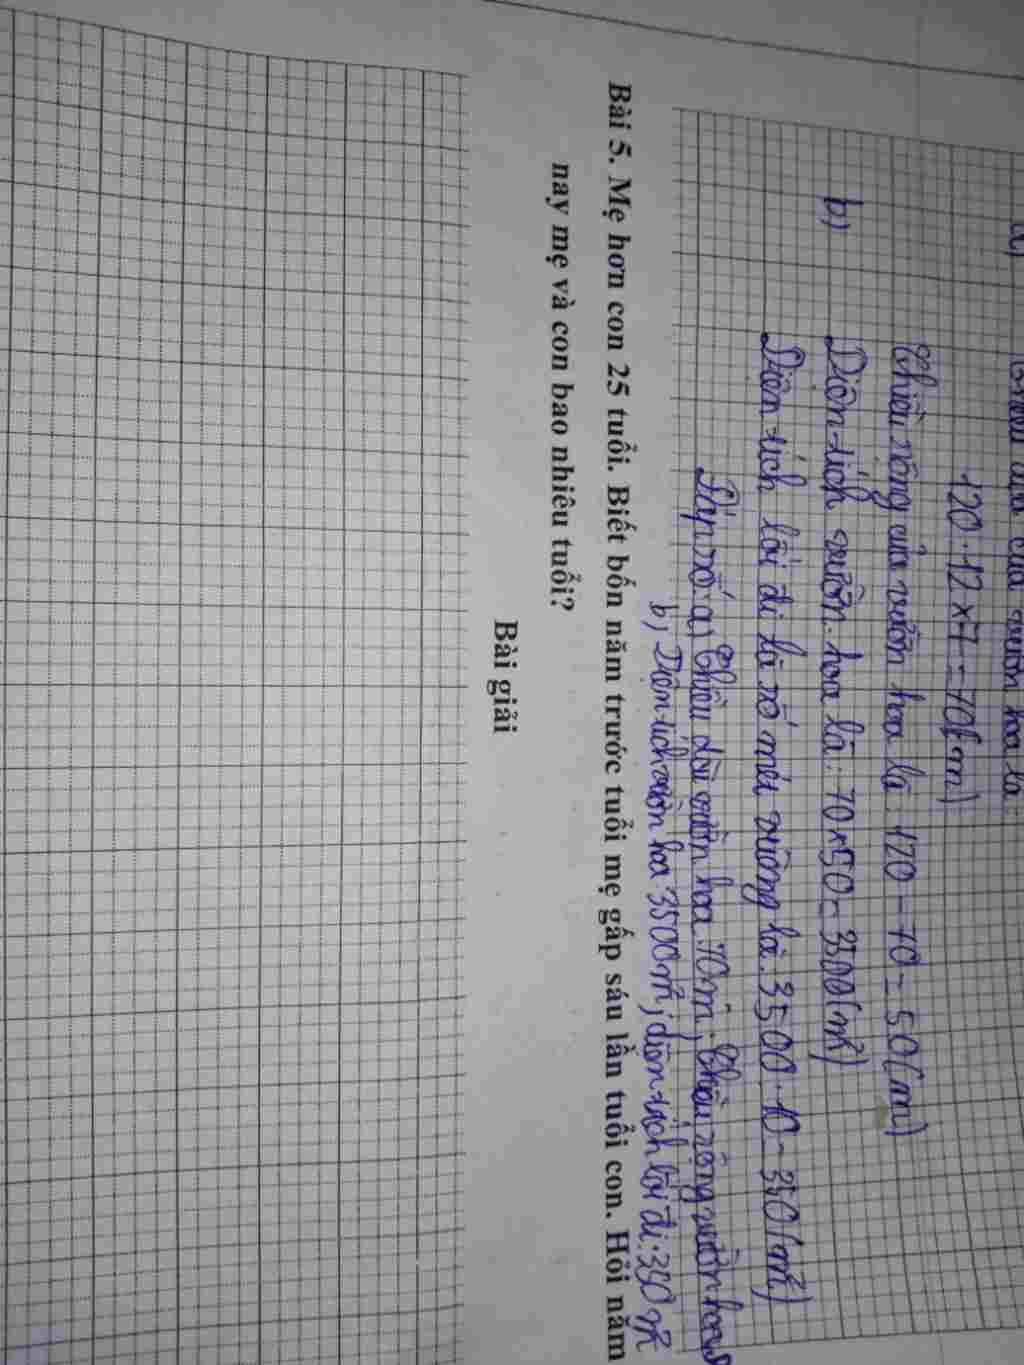 của vườn hoa là:
120 : 12 x 7 = 70 (m)
Chiều rộng của vườn hoa là: 120 - 70 = 50 (m)
b) Diện tích vườn hoa là: 70 x 50 = 3500 (m²)
Diện tích lối đi là số mét vuông là: 3500 : 10 = 350 (m²)
Đáp số: a) Chiều dài vườn hoa 70m; Chiều rộng vườn hoa
b) Diện tích vườn hoa 3500 m²; diện tích lối đi: 350 m²
Bài 5. Mẹ hơn con 25 tuổi. Biết bốn năm trước tuổi mẹ gấp sáu lần tuổi con. Hỏi năm
nay mẹ và con bao nhiêu tuổi?
Bài giải